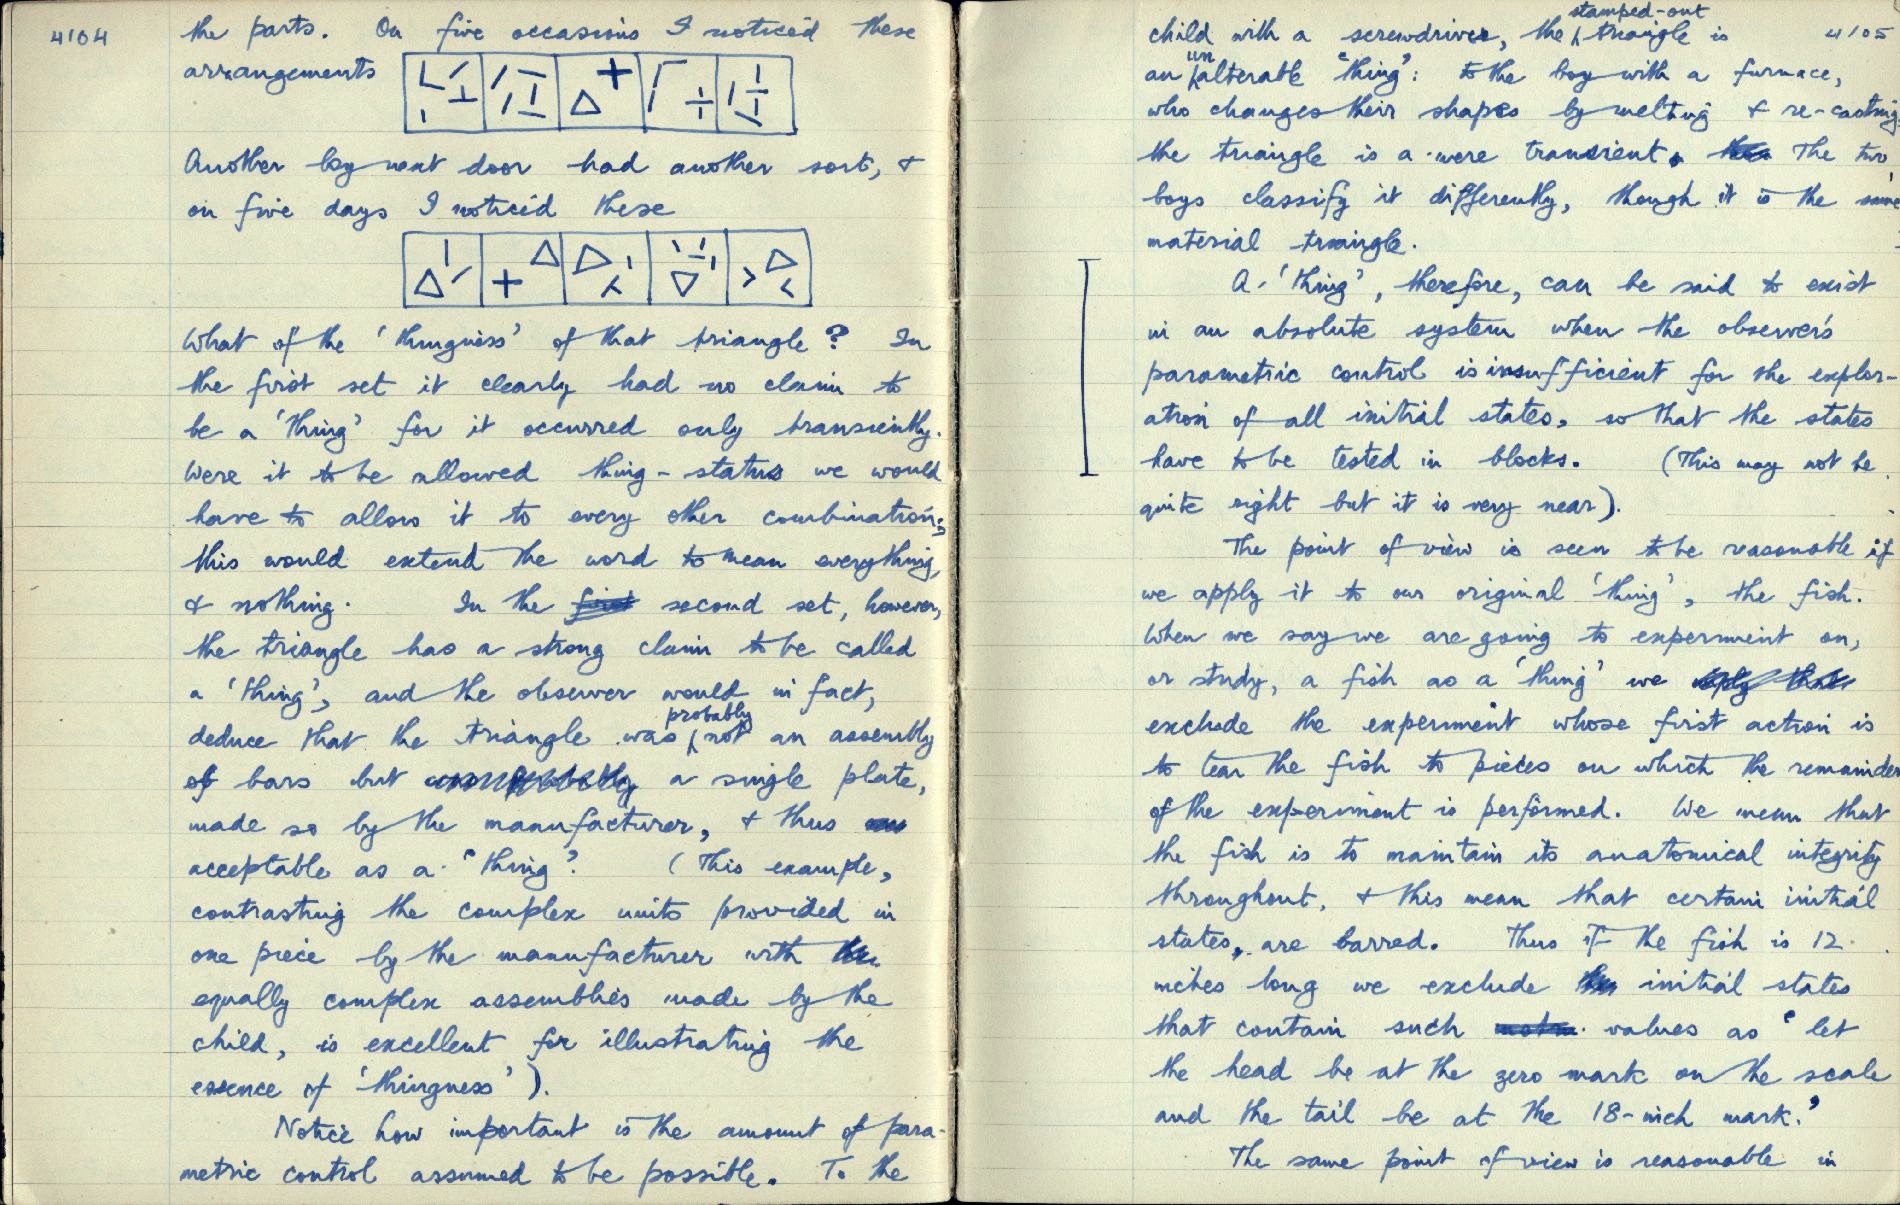 4104
the parts. On five occasions I noticed these
arrangements
Another boy next door had another sort, &
on five days I noticed these
What of the 'thingness' of that triangle? In
the first set it clearly had no claim to
be a 'thing' for it occurred only transiently.
Were it to be allowed thing-status we would
have to allow it to every other combination;
this would extend the word to mean everything,
& nothing. In the first second set, however,
the triangle has a strong claim to be called
a 'thing', and the observer would in fact,
deduce that the triangle was probably not an assembly
of bars but a single plate,
made so by the manufacturer, & thus
acceptable as a 'thing'. (This example,
contrasting the complex units provided in
one piece by the manufacturer with the
equally complex assemblies made by the
child, is excellent for illustrating the
essence of 'thingness').
Notice how important is the amount of para-
metric control assumed to be possible. To the
4105
child with a screwdriver, the stamped-out triangle is
an unalterable 'thing': to the boy with a furnace,
who changes their shapes by melting & re-casting
the triangle is a mere transient. The two
boys classify it differently, though it is the same
material triangle.
A 'thing', therefore, can be said to exist
in an absolute system when the observer's
parametric control is insufficient for the explor-
ation of all initial states, so that the states
have to be tested in blocks. (This may not be
quite right but it is very near).
The point of view is seen to be reasonable if
we apply it to our original 'thing', the fish.
When we say we are going to experiment on,
or study, a fish as a 'thing' we
exclude the experiment whose first action is
to tear the fish to pieces on which the remainder
of the experiment is performed. We mean that
the fish is to maintain its anatomical integrity
throughout, & this mean that certain initial
states, are barred. Thus if the fish is 12
inches long we exclude initial states
that contain such values as 'let
the head be at the zero mark on the scale
and the tail be at the 18-inch mark.'
The same point of view is reasonable in